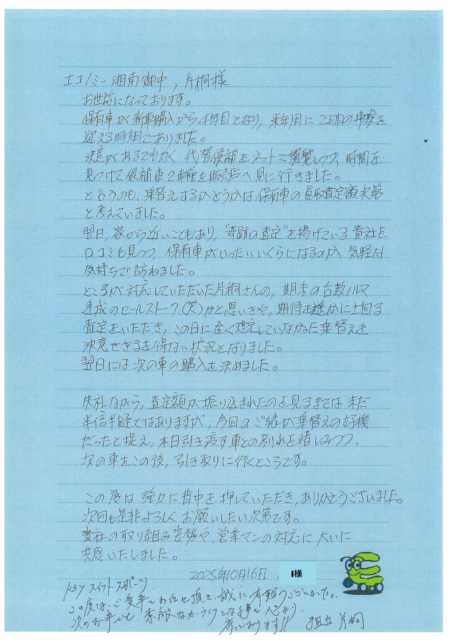 エコノミー湘南御中, 片桐様
お世話になっております。
保有車が新車購入から4年目となり, 来年1月に2回目の車検を
迎える時期でありました。
決意があるでもなく 代替候補をネットで閲覧しつつ, 時間を
見つけて候補車2車種を販売店へ見に行きました。
と言うのも, 乗替えするかどうかは保有車の買取査定額次第
と考えていました。
翌日, 家から近いこともあり, の査定"を掲げている貴社を
口コミも見つつ 保有車がいったいいくらになるのか 気軽な
気持ちで訪ねました。
ところが対応していただいた片桐さんの, 期末の台数ノルマ
達成のセールストーク(笑)かと思いきや, 期待を遥かに上回る
査定をいただき, この日に全く想定していなかった乗替えを
決意せざるを得ない状況となりました。
翌日には次の車の購入を決めました。
失礼ながら, 査定額が振り込まれたのを見るまでは まだ
半信半疑ではありますが, 今回のご縁が乗替えの好機
だったと捉え, 本日引き渡す車との別れを惜しみつつ,
次の車をこの後, 引き取りに行くところです。
この度は 強力に背中を押していただき, ありがとうございました。
次回も是非よろしく お願いしたい次第です。
貴社の取り組み姿勢や, 営業マンの対応に 大いに
共感いたしました。
2025年10月16日 様
スイフトスポーツ
この度は、ご愛車をお任せ頂き誠に有難うございました。
次のお車でも、素敵なカーライフを
担当 片桐